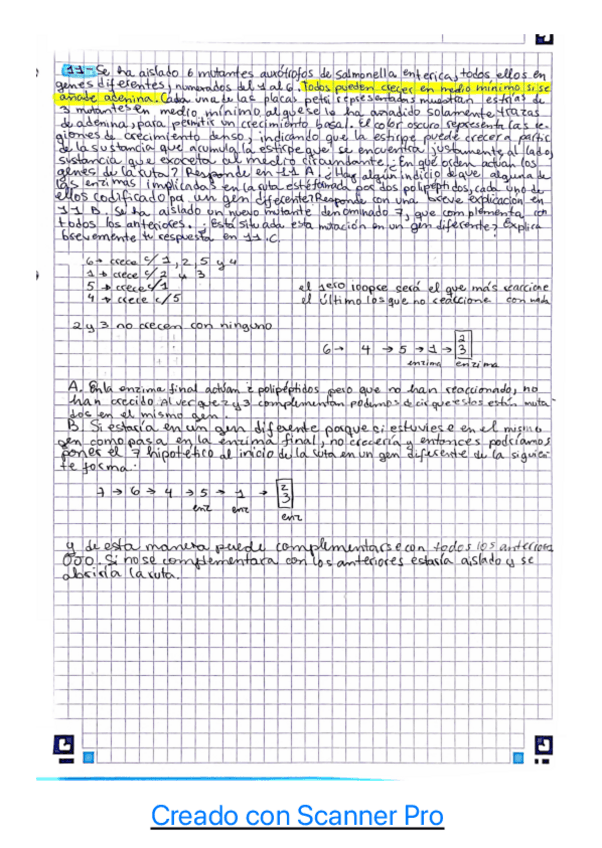 11-Se ha aislado 6 mutantes auxótrofos de Salmonella enterica, todos ellos en
genes diferentes, numerados del 1 al 6. Todos pueden crecer en medio mínimo si se
añade adenina. Cada una de las placas petri representadas muestran estrías de
3 mutantes en medio mínimo al que se le ha añadido solamente trazas
de adenina, para permitir un crecimiento basal. El color oscuro representa las re-
giones de crecimiento denso, indicando que la estirpe puede crecer a partir
de la sustancia que acumula la estirpe que se encuentra justamente al lado,
sustancia que exocreta al medio circundante. ¿En qué orden actúan los
genes de la ruta? Responde en 11 A. ¿Hay algún indicio de que alguna de
las enzimas implicadas en la ruta esté formada por dos polipéptidos, cada uno de
ellos codificado pa un gen diferente? Responde con una breve explicación en
11 B. Se ha aislado un nuevo mutante denominado 7, que complementa con
todos los anteriores. ¿Está situada esta mutación en un gen diferente? Explica
brevemente tu respuesta en 11.C.
6 → crece c/ 1, 2, 5 y 4
1 → crece c/ 2 y 3
5 → crece c/ 1
4 → crece c/ 5
el será el que más reaccione
el último los que no reaccione con nada
2 y 3 no crecen con ninguno
6 → 4 → 5 → 1 → 2 3
enzima enzima
A. En la enzima final actúan 2 polipéptidos pero que no han reaccionado, no
han crecido. Al ver que 2 y 3 complementan podemos decir que estos están muta-
dos en el mismo gen.
B. Si estaría en un gen diferente porque si estuviese en el mismo
gen como pasa en la enzima final, no crecería y entonces podríamos
poner el 7 hipotético al inicio de la ruta en un gen diferente de la siguien
te forma:
7 → 6 → 4 → 5 → 1 → 2 3
enz enz
enz
y de esta manera puede complementarse con todos los anteriores
Si no se complementara con los anteriores estaría aislado y se
abriría la ruta.
Creado con Scanner Pro